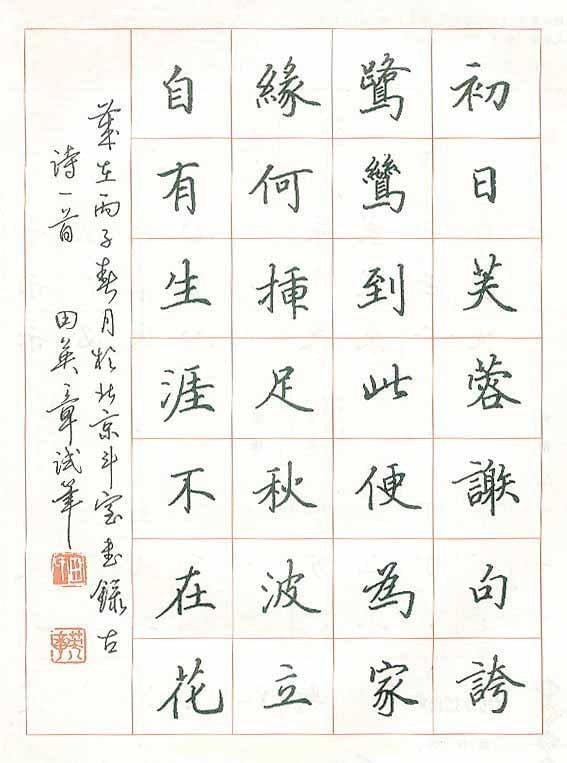 初日芙蓉謝句誇
鷺鷥到此便為家
緣何插足秋波立
自有生涯不在花
歲在丙子春月於北京斗室書錄古
诗一首 田英章试筆